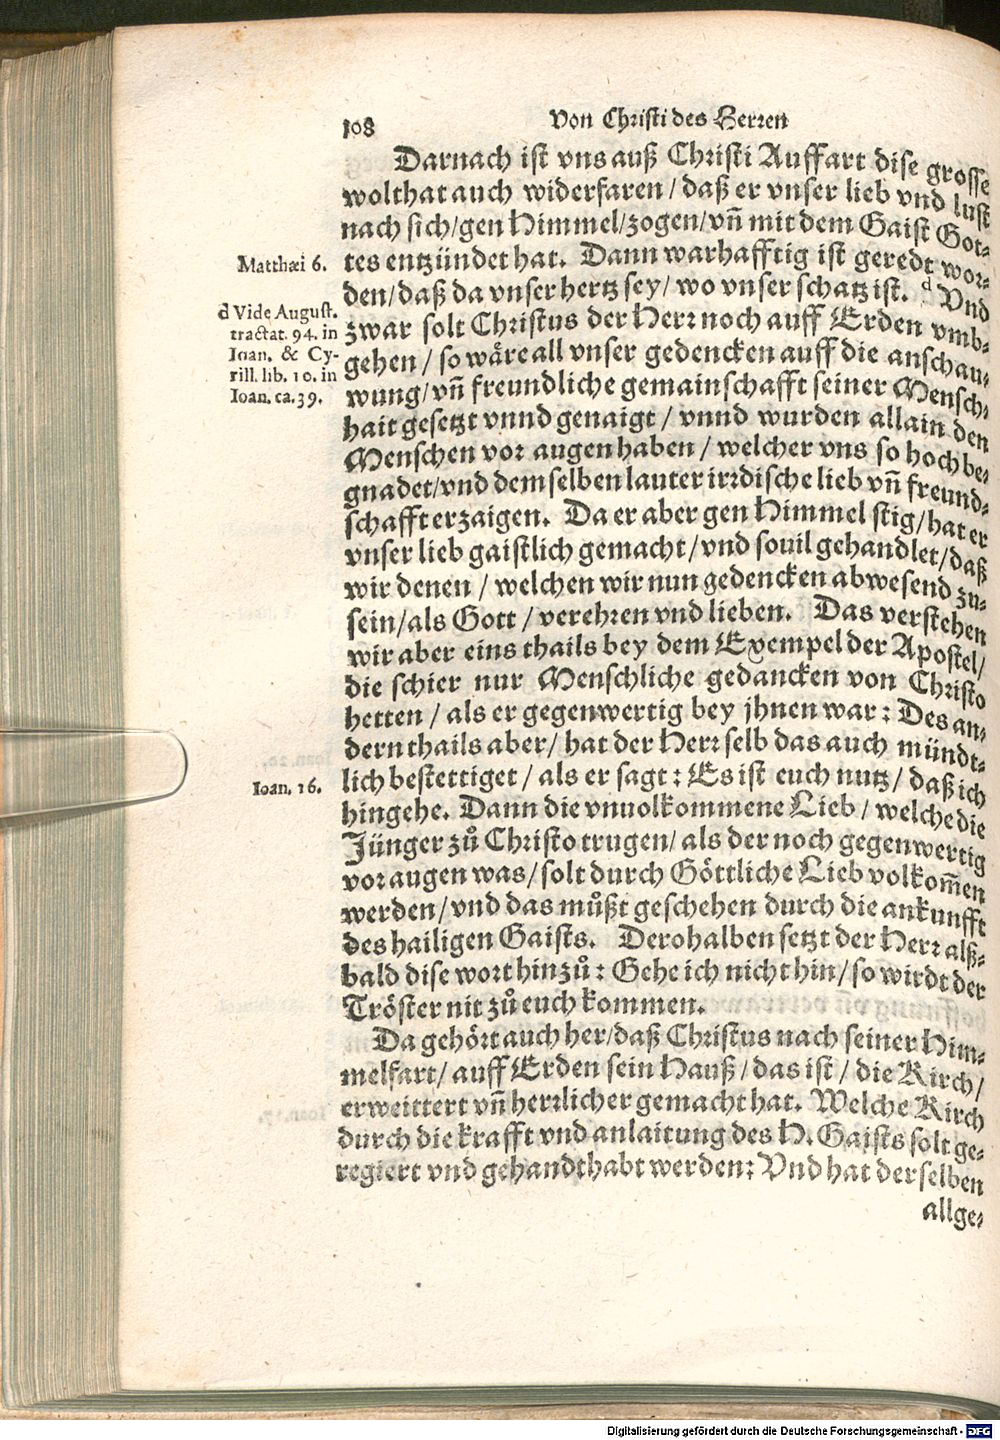 108
Von Christi des Herren
Darnach ist vns auß Christi Auffart dise grosse
wolthat auch widerfaren / daß er vnser lieb vnd lust
nach sich/gen Himmel/zogen/vñ mit dem Gaist Got-
tes entzündet hat. Dann warhafftig ist geredt wor-
den/daß da vnser hertz sey/ wo vnser schatz ist. d Vnd
zwar solt Christus der Herr noch auff Erden vmb-
gehen / so wäre all vnser gedencken auff die anschau-
wung/vñ freundliche gemainschafft seiner Mensch-
hait gesetzt vnnd genaigt / vnnd wurden allain den
Menschen vor augen haben / welcher vns so hoch be-
gnadet/vnd dem selben lauter irrdische lieb vñ freund-
schafft erzaigen. Da er aber gen Himmel stig/hat er
vnser lieb gaistlich gemacht/vnd souil gehandlet/daß
wir denen / welchen wir nun gedencken abwesend zu-
sein/als Gott / verehren vnd lieben. Das verstehen
wir aber eins thails bey dem Exempel der Apostel/
die schier nur Menschliche gedancken von Christo
hetten / als er gegenwertig bey jhnen war: Des an-
dern thails aber/ hat der Herr selb das auch mündt-
lich bestettiget / als er sagt: Es ist euch nutz/ daß ich
hingehe. Dann die vnuolkommene Lieb / welche die
Jünger zů Christo trugen/ als der noch gegenwertig
vor augen was/solt durch Göttliche Lieb volkom̃en
werden/vnd das můßt geschehen durch die ankunfft
des hailigen Gaists. Derohalben setzt der Herr alß-
bald dise wort hinzů: Gehe ich nicht hin/so wirdt der
Tröster nit zů euch kommen.
Da gehört auch her/daß Christus nach seiner Him-
melfart/ auff Erden sein Hauß/das ist / die Kirch/
erweittert vñ herrlicher gemacht hat. Welche Kirch
durch die krafft vnd anlaitung des H. Gaists solt ge-
regiert vnd gehandthabt werden: Vnd hat derselben
allge-
Matthæi 6.
d Vide August.
tractat. 94. in
Ioan. & Cy-
rill. lib. 10. in
Ioan. ca. 39.
Ioan. 16.
Digitalisierung gefördert durch die Deutsche Forschungsgemeinschaft - DFG